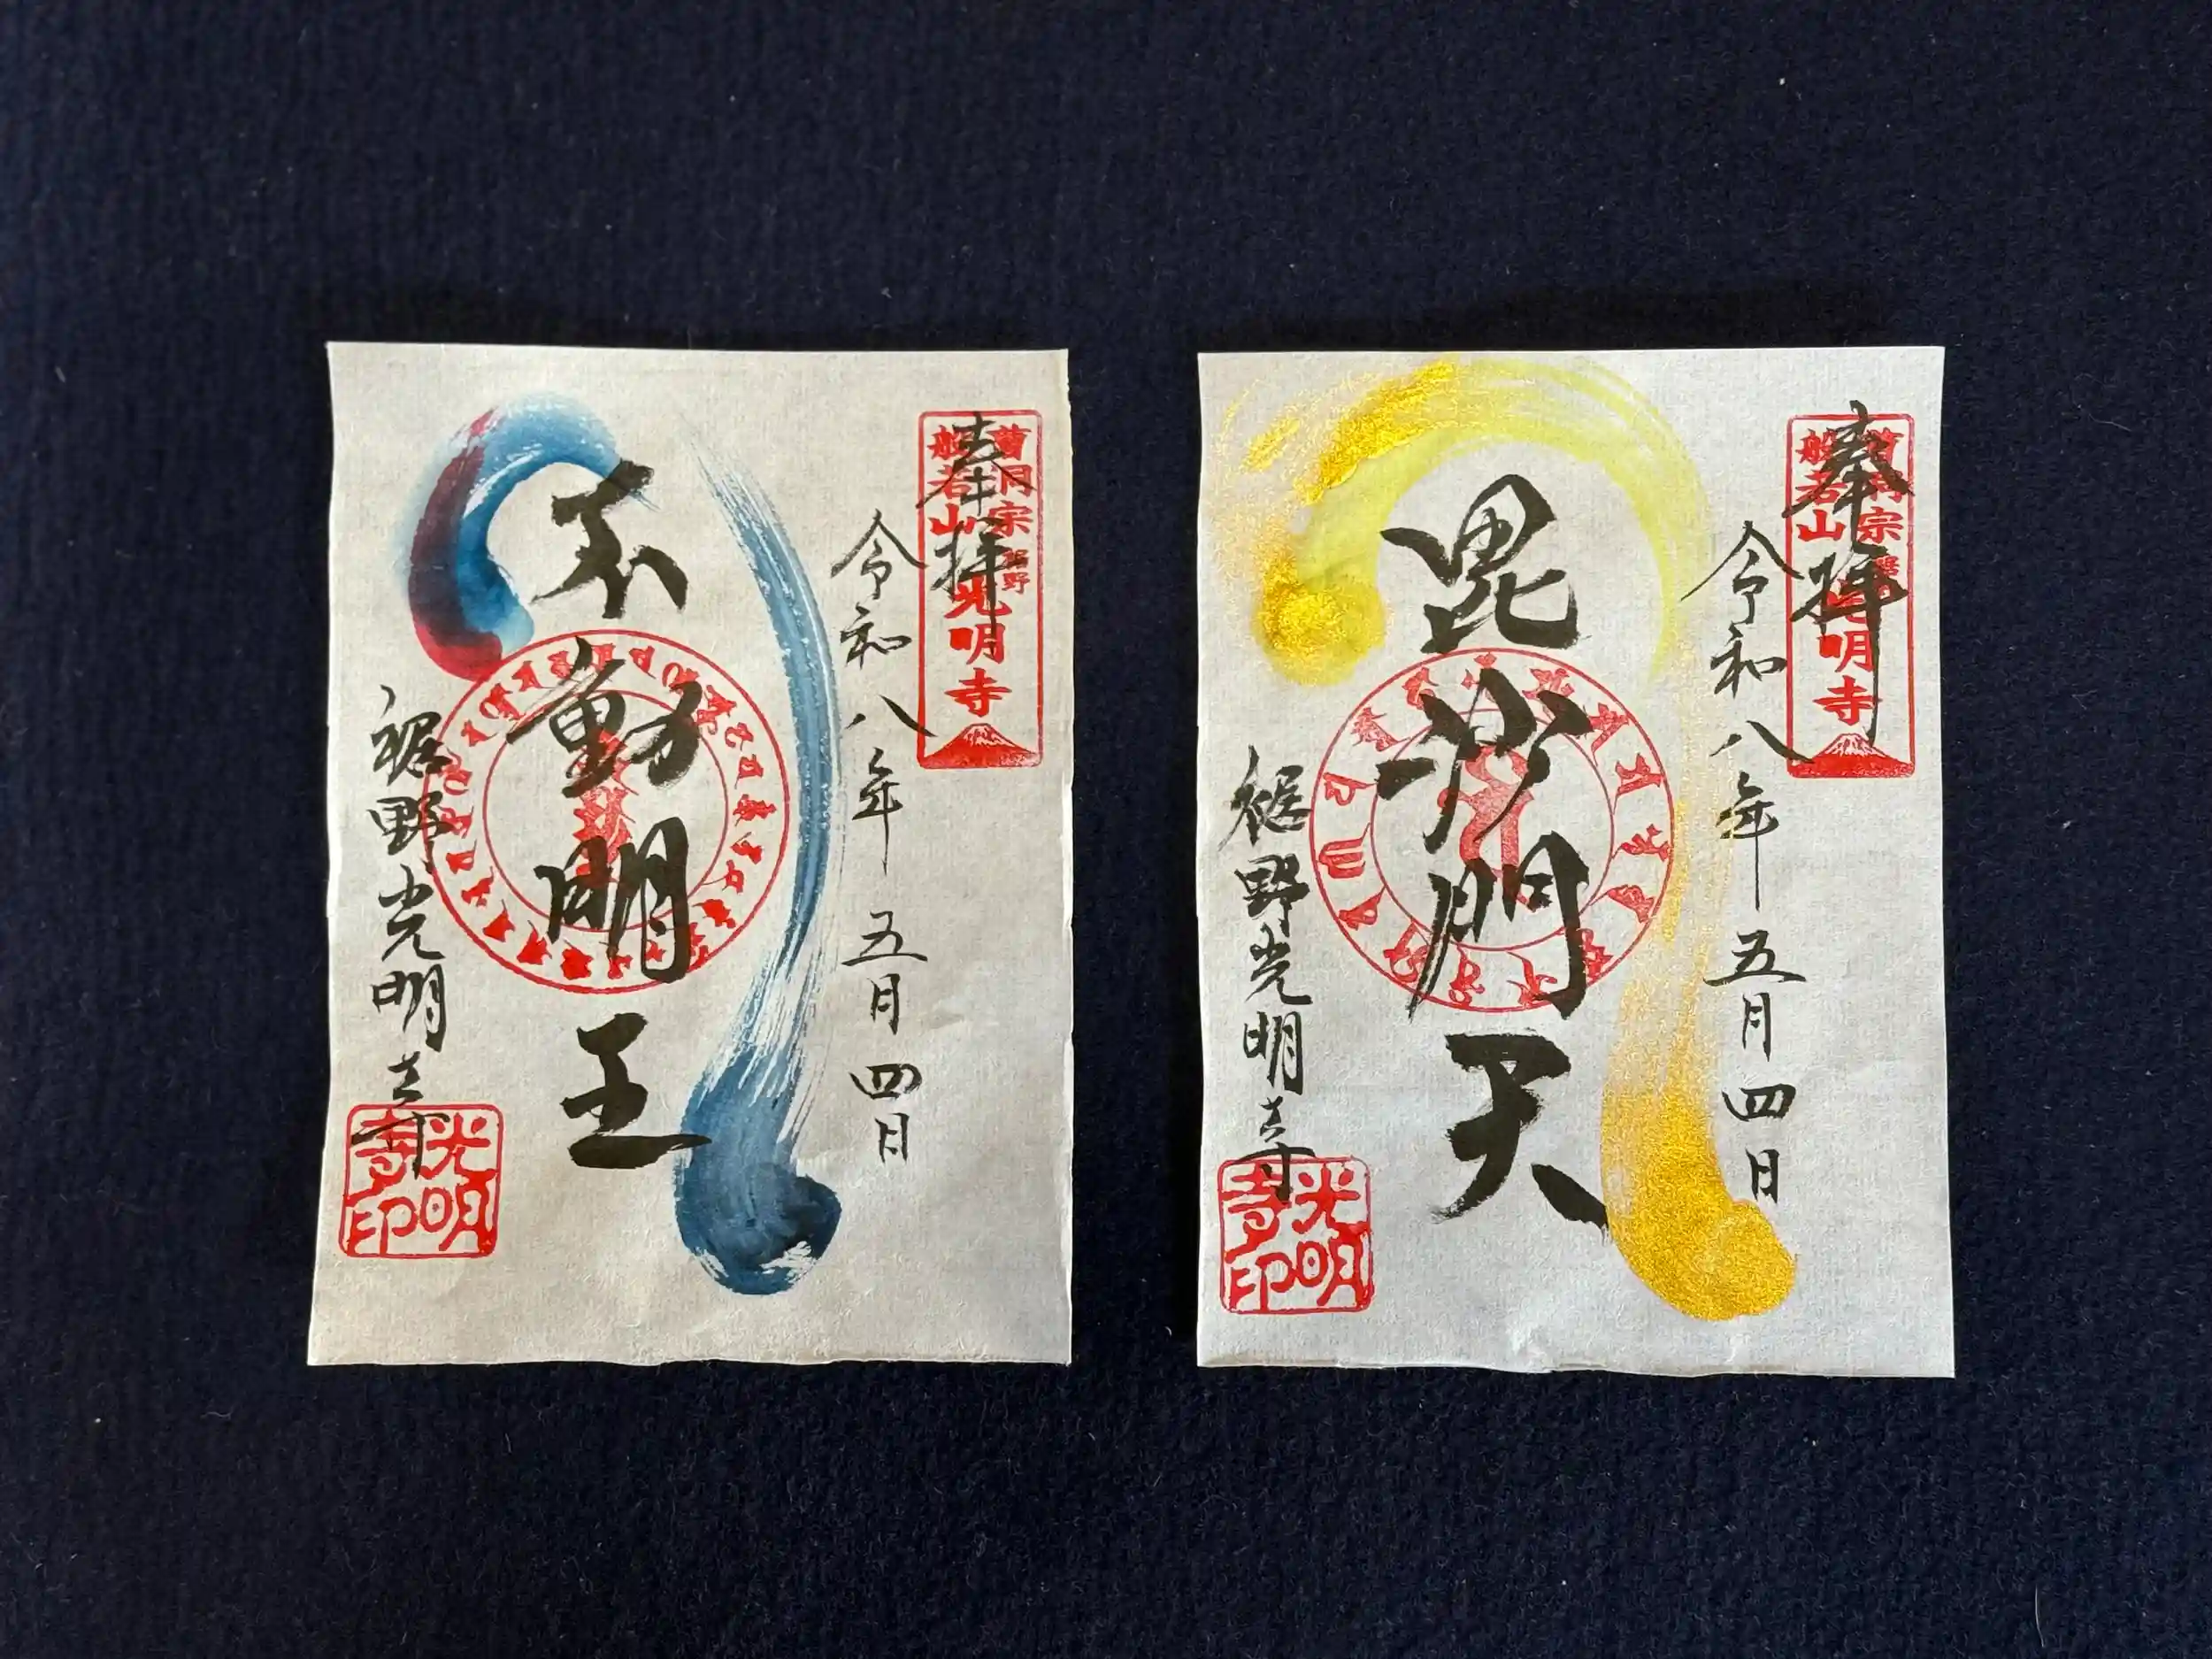 奉拝
曹洞宗 裾野
般若山 光明寺
令和八年五月四日
不動明王
裾野光明寺
光明寺印
奉拝
曹洞宗 裾野
般若山 光明寺
令和八年五月四日
毘沙門天
裾野光明寺
光明寺印